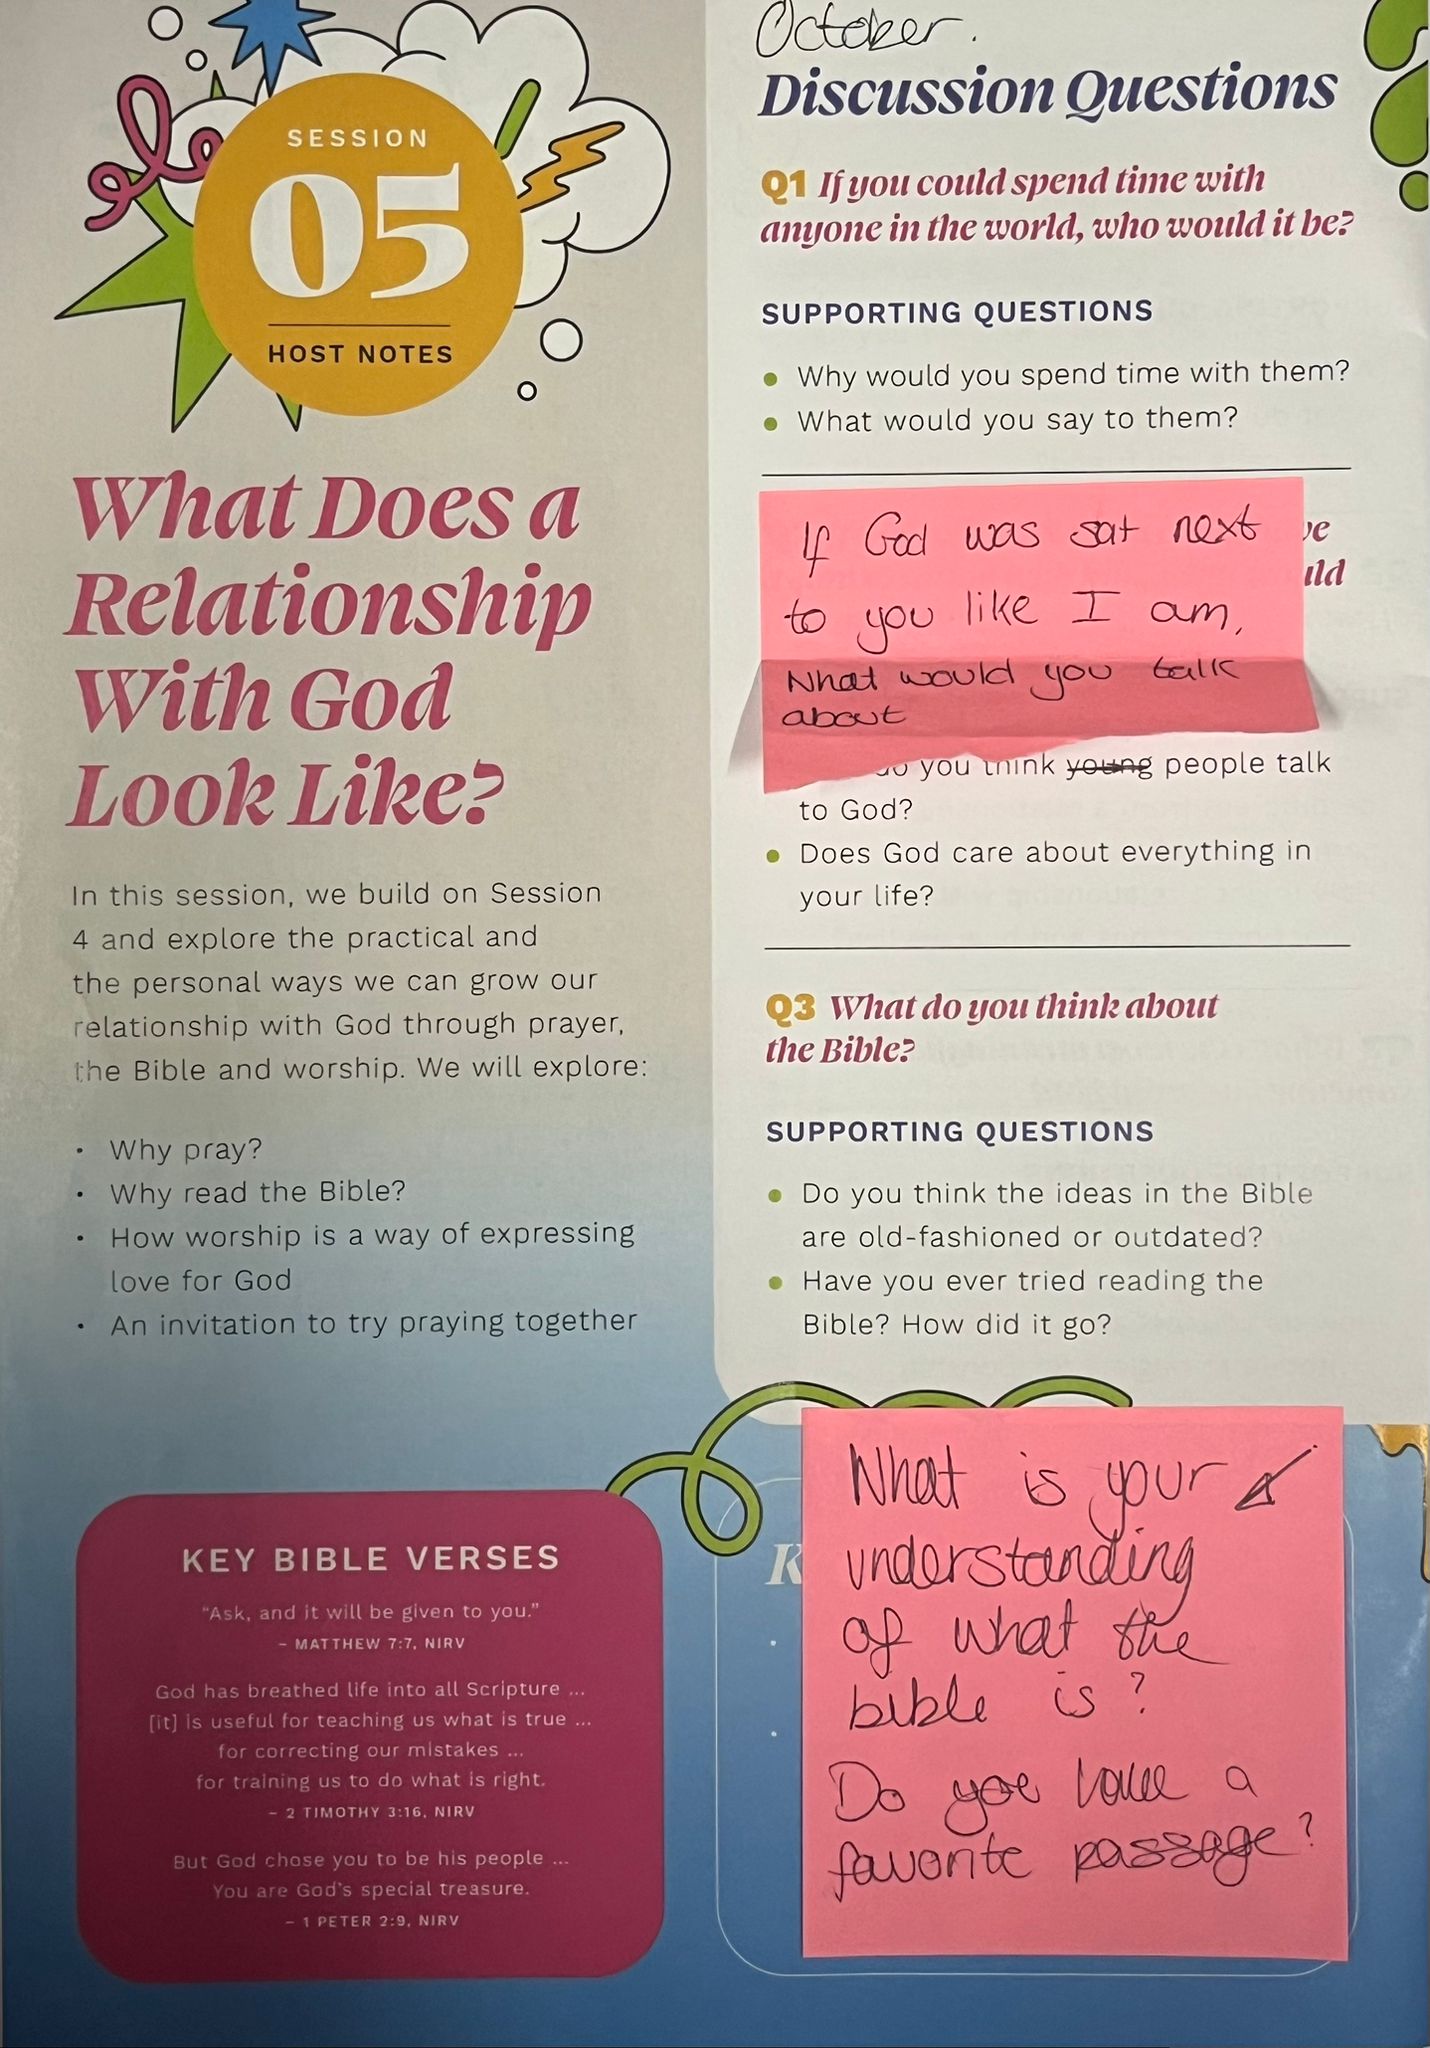 SESSION
05
HOST NOTES
What Does a
Relationship
With God
Look Like?
In this session, we build on Session
4 and explore the practical and
the personal ways we can grow our
relationship with God through prayer,
the Bible and worship. We will explore:
• Why pray?
• Why read the Bible?
• How worship is a way of expressing
love for God
• An invitation to try praying together
KEY BIBLE VERSES
“Ask, and it will be given to you.”
– MATTHEW 7:7, NIRV
God has breathed life into all Scripture ...
[it] is useful for teaching us what is true ...
for correcting our mistakes ...
for training us to do what is right.
– 2 TIMOTHY 3:16, NIRV
But God chose you to be his people ...
You are God’s special treasure.
– 1 PETER 2:9, NIRV
October.
Discussion Questions
Q1 If you could spend time with
anyone in the world, who would it be?
SUPPORTING QUESTIONS
• Why would you spend time with them?
• What would you say to them?
If God was sat next
to you like I am,
What would you talk
about
do you think young people talk
to God?
• Does God care about everything in
your life?
Q3 What do you think about
the Bible?
SUPPORTING QUESTIONS
• Do you think the ideas in the Bible
are old-fashioned or outdated?
• Have you ever tried reading the
Bible? How did it go?
What is your
understanding
of what the
bible is?
Do you have a
favorite passage?